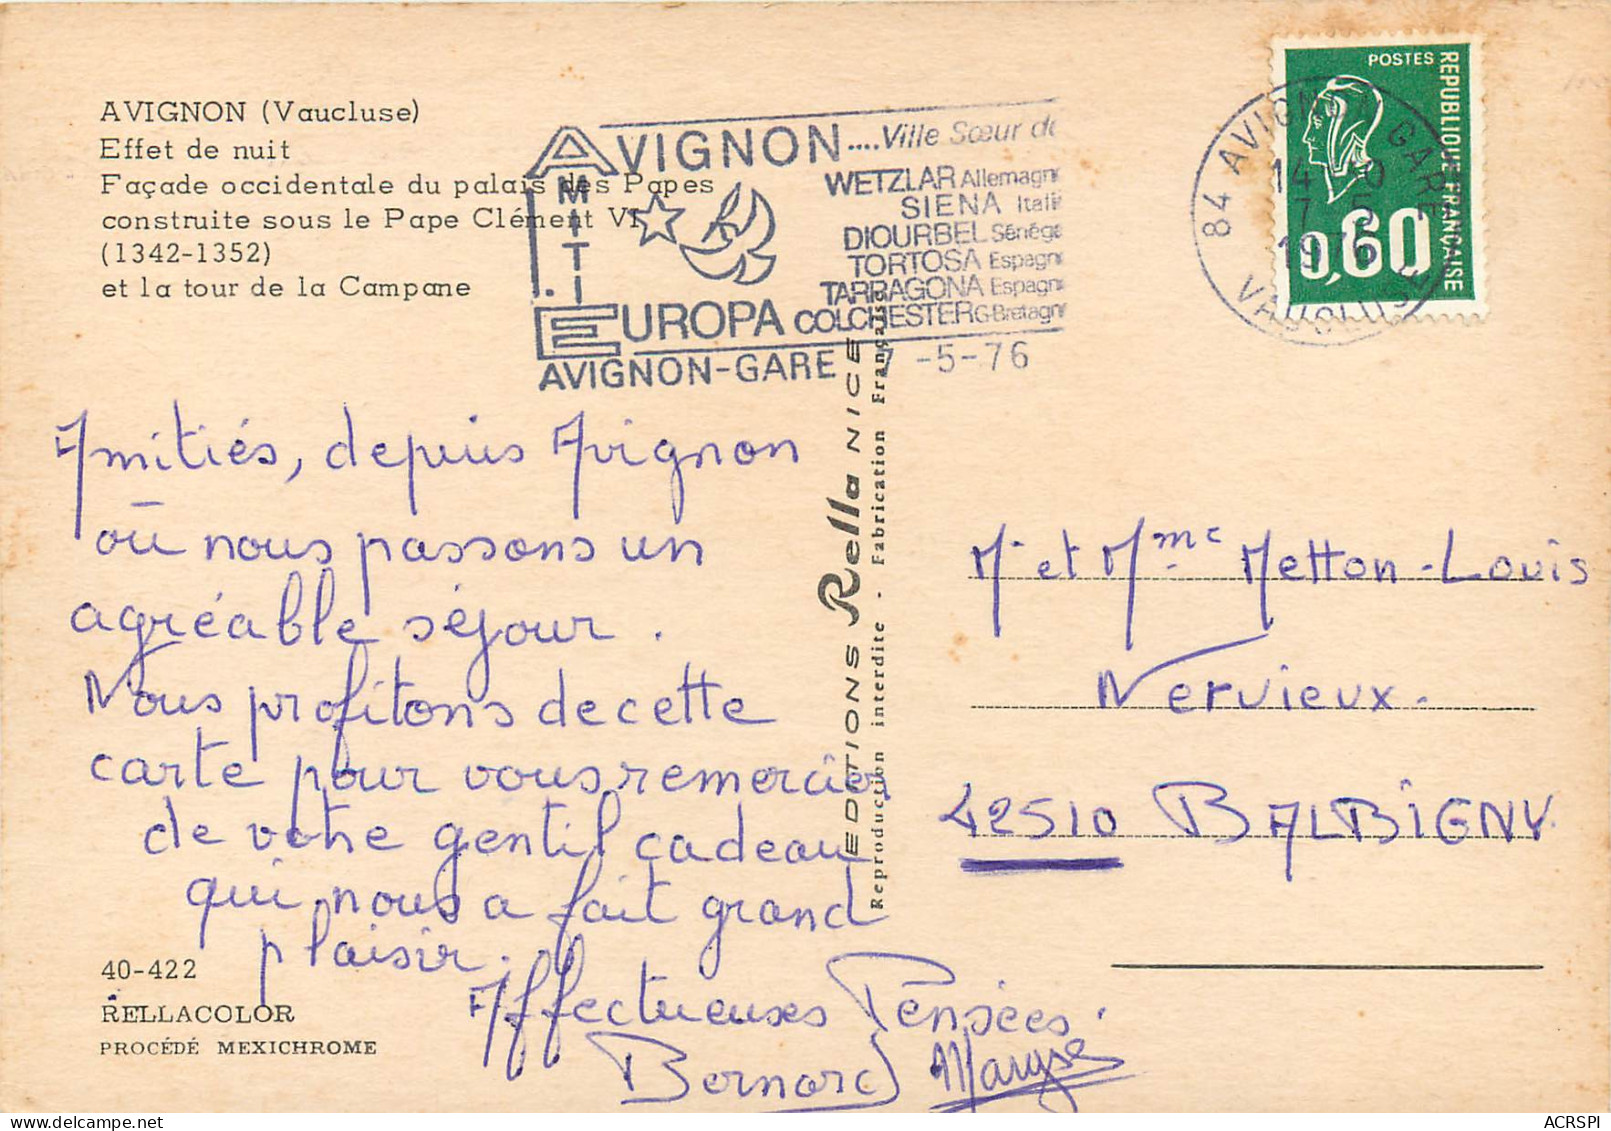 AVIGNON (Vaucluse)
Effet de nuit
Façade occidentale du palais des Papes
construite sous le Pape Clément VI
(1342-1352)
et la tour de la Campane
AVIGNON....Ville Sœur de
AMITIE
WETZLAR Allemagn
SIENA Itali
DIOURBEL Sénéga
TORTOSA Espagn
TARRAGONA Espagn
EUROPA COLCHESTER G-Bretagn
AVIGNON-GARE 7 -5-76
84 AVIGNON GARE
14
7 5
1976
VAUCLUSE
POSTES
REPUBLIQUE FRANÇAISE
0,60
Amitiés, depuis Avignon
où nous passons un
agréable séjour.
Nous profitons de cette
carte pour vous remercier
de votre gentil cadeau
qui nous a fait grand
plaisir.
Affectueuses Pensées.
Bernard Maryse
EDITIONS Rella NICE
Reproduction interdite - Fabrication Française
Mr et Mme Metton-Louis
Nervieux.
42510 BALBIGNY.
40-422
RELLACOLOR
PROCÉDÉ MEXICHROME
ACRSPI